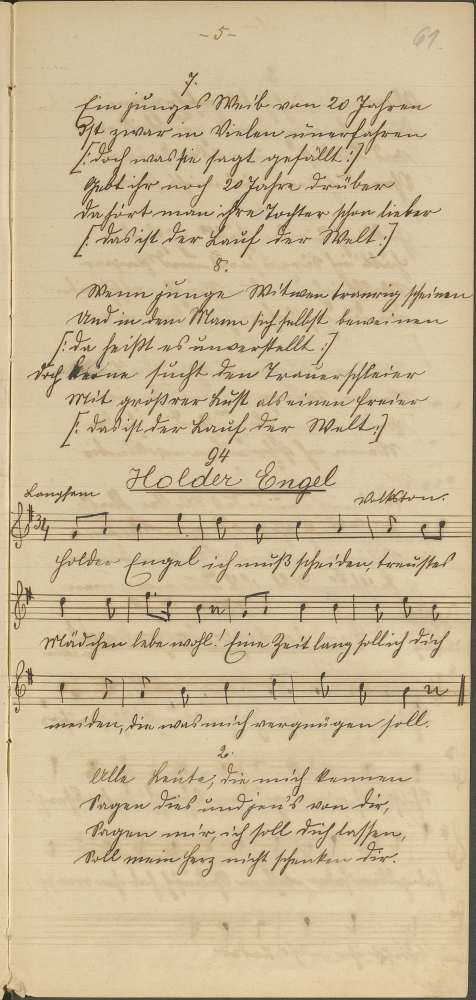 - 5 -
61.
7.
Ein junges Weib von 20 Jahren
Ist zwar in Vielen unerfahren
[: doch was sie sagt gefällt :]
Gebt ihr noch 20 Jahre drüber
da hört man ihre Tochter schon lieber
[: das ist der Lauf der Welt :]
8.
Wenn junge Witwen traurig scheinen
Und in dem Mann sich selbst beweinen
[: da heißt es unverstellt :]
doch keine sucht den Trauerschleier
Mit großrer Lust als einen Freier
[: das ist der Lauf der Welt :]
94
Holder Engel
Langsam
Volkston.
3/4
Holder Engel ich muß scheiden, treustes
Mädchen lebe wohl! Eine Zeit lang soll ich dich
meiden, die was mich vergnügen soll.
2.
Alle Leute, die mich kennen
Sagen dies und jen's von dir,
Sagen mir, ich soll dich lassen,
Soll mein Herz nicht schenken dir.